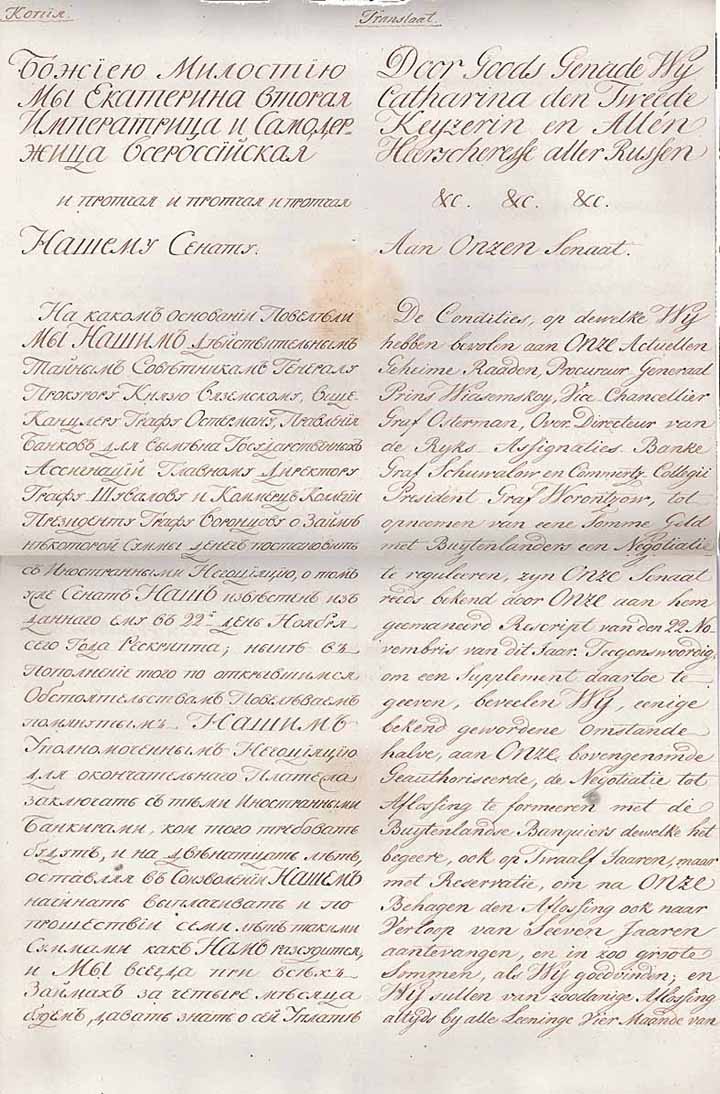 Копія.
Божіею Милостію
Мы Екатерина вторая
Императрица и Самодер-
жица всероссійская
и протчая и протчая и протчая
Нашему Сенату.
На какомъ основаніи Повелѣли
Мы Нашимъ дѣйствительнымъ
Тайнымъ Совѣтникамъ Генералу
Прокурору Князю Вяземскому, Вице
Канцлеру Графу Остерману, Правленія
Банковъ для вымѣна Государственныхъ
Ассигнацій Главному Директору
Графу Шувалову и Коммерцъ Коллегіи
Президенту Графу Воронцову о Займѣ
нѣкоторой Суммы денегъ постановить
съ Иностранными Негоціяцію, о томъ
уже Сенатъ Нашъ извѣстенъ изъ
даннаго ему въ 22й день Ноября
сего Года Рескрипта; нынѣ въ
пополненіе того по открывшимся
Обстоятельствамъ Повелѣваемъ
помянутымъ Нашимъ
Уполномоченнымъ Негоціяцію
для окончательнаго Платежа
заключать съ тѣми Иностранными
Банкирами, кои того требовать
будутъ, и на двѣнатцать лѣтъ,
оставляя въ Соизволеніи Нашемъ
начинать выплачивать и по
прошествіи семи лѣтъ такими
Суммами какъ Намъ разсудится,
и Мы всегда при всѣхъ
Займахъ за четыре мѣсяца
будемъ давать знать о сей Уплатѣ
Translaat.
Door Goods Genade Wij
Catharina den Tweede
Keyzerin en Allén
Heerscheresse aller Russen
&c. &c. &c.
Aan Onzen Senaat.
De Condities, op dewelke Wij
hebben bevolen aan Onze Actuellen
Geheime Raaden, Procureur Generaal
Prins Wiasemskoy, Vice-Chancellier
Graf Osterman, Over Directeur van
de Ryks-Assignaties-Banke
Graf Schuwalow en Commertz Collegii
President Graf Worontzow, tot
opneemen van eene Somme Geld
met Buytenlanders een Negotiatie
te reguleeren, zyn Onze Senaat
reeds bekend door Onze aan hem
geemaneerd Rescript van den 22 No-
vembris van dit Jaar. Teegenswoordig,
om een Supplement daartoe te
geeven, beveelen Wij, eenige
bekend gewordene omstande
halve, aan Onze bovengenoemde
Geauthoriseerde, de Negotiatie tot
Aflossing te formeeren met de
Buytenlandse Banquiers dewelke het
begeere, ook op Twaalf Jaaren, maar
met Reservatie, om na Onze
Behagen den Aflossing ook naar
Verloop van Seeven Jaaren
aantevangen, en in zoo groote
Sommen, als Wij goedvinden; en
Wij sullen van zoodanige Aflossing
altijds by alle Leeninge Vier Maande van